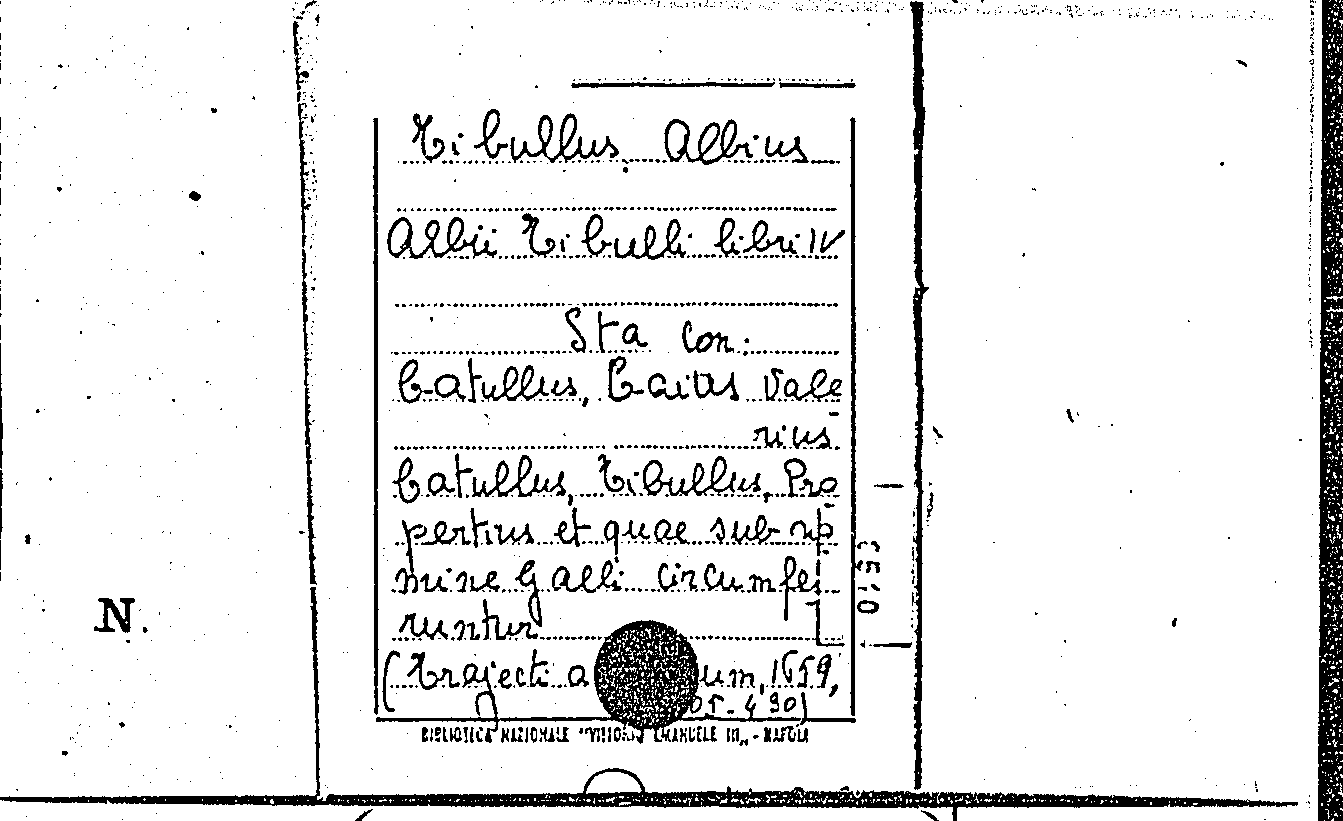 Tibullus Albius
Albii Tibulli libri IV
Sta con:
Catullus, Caius Vale
rius
Catullus, Tibullus, Pro
pertius et quae sub no
mine Galli circumfe
runtur
(Trajecti a um, 1659,
05-430)
BIBLIOTECA NAZIONALE "VITTORIO EMANUELE III" - NAPOLI
N.